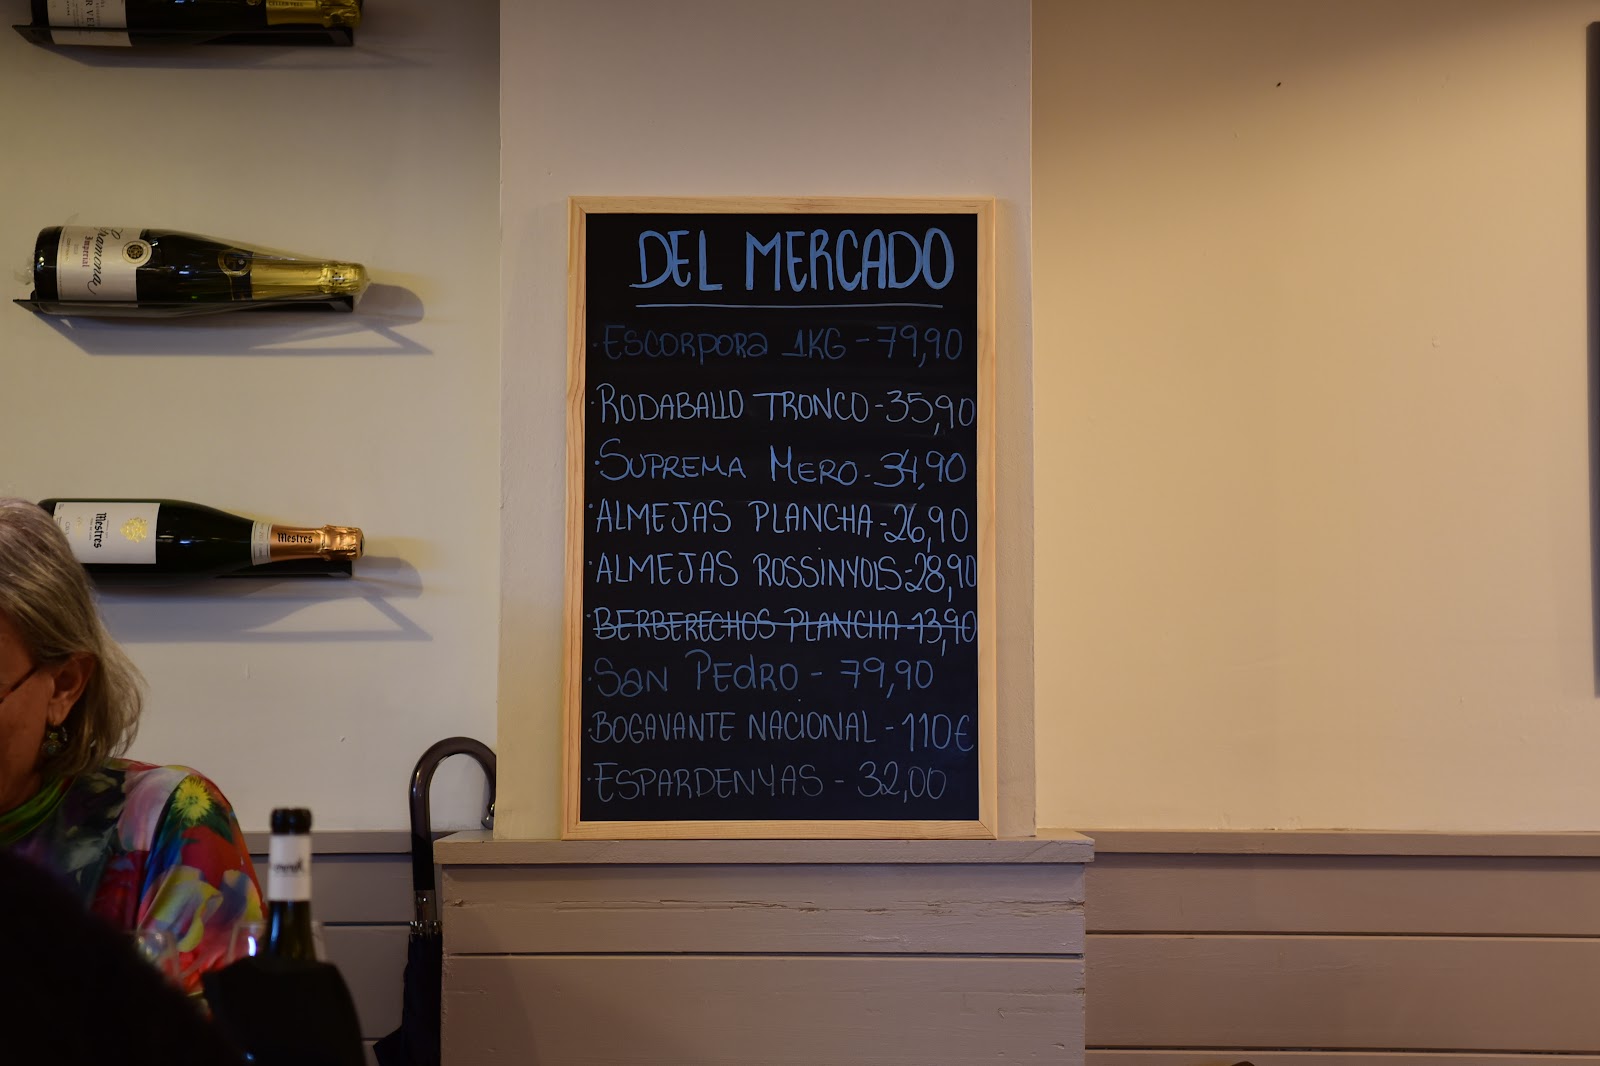 DEL MERCADO
· ESCORPORA 1KG - 79,90
· RODABALLO TRONCO - 35,90
· SUPREMA MERO - 34,90
· ALMEJAS PLANCHA - 26,90
· ALMEJAS ROSSINYOLS - 28,90
· BERBERECHOS PLANCHA - 13,90
· SAN PEDRO - 79,90
· BOGAVANTE NACIONAL - 110€
· ESPARDENYAS - 32,00
Gramona
Imperial
Mestres
Mestres